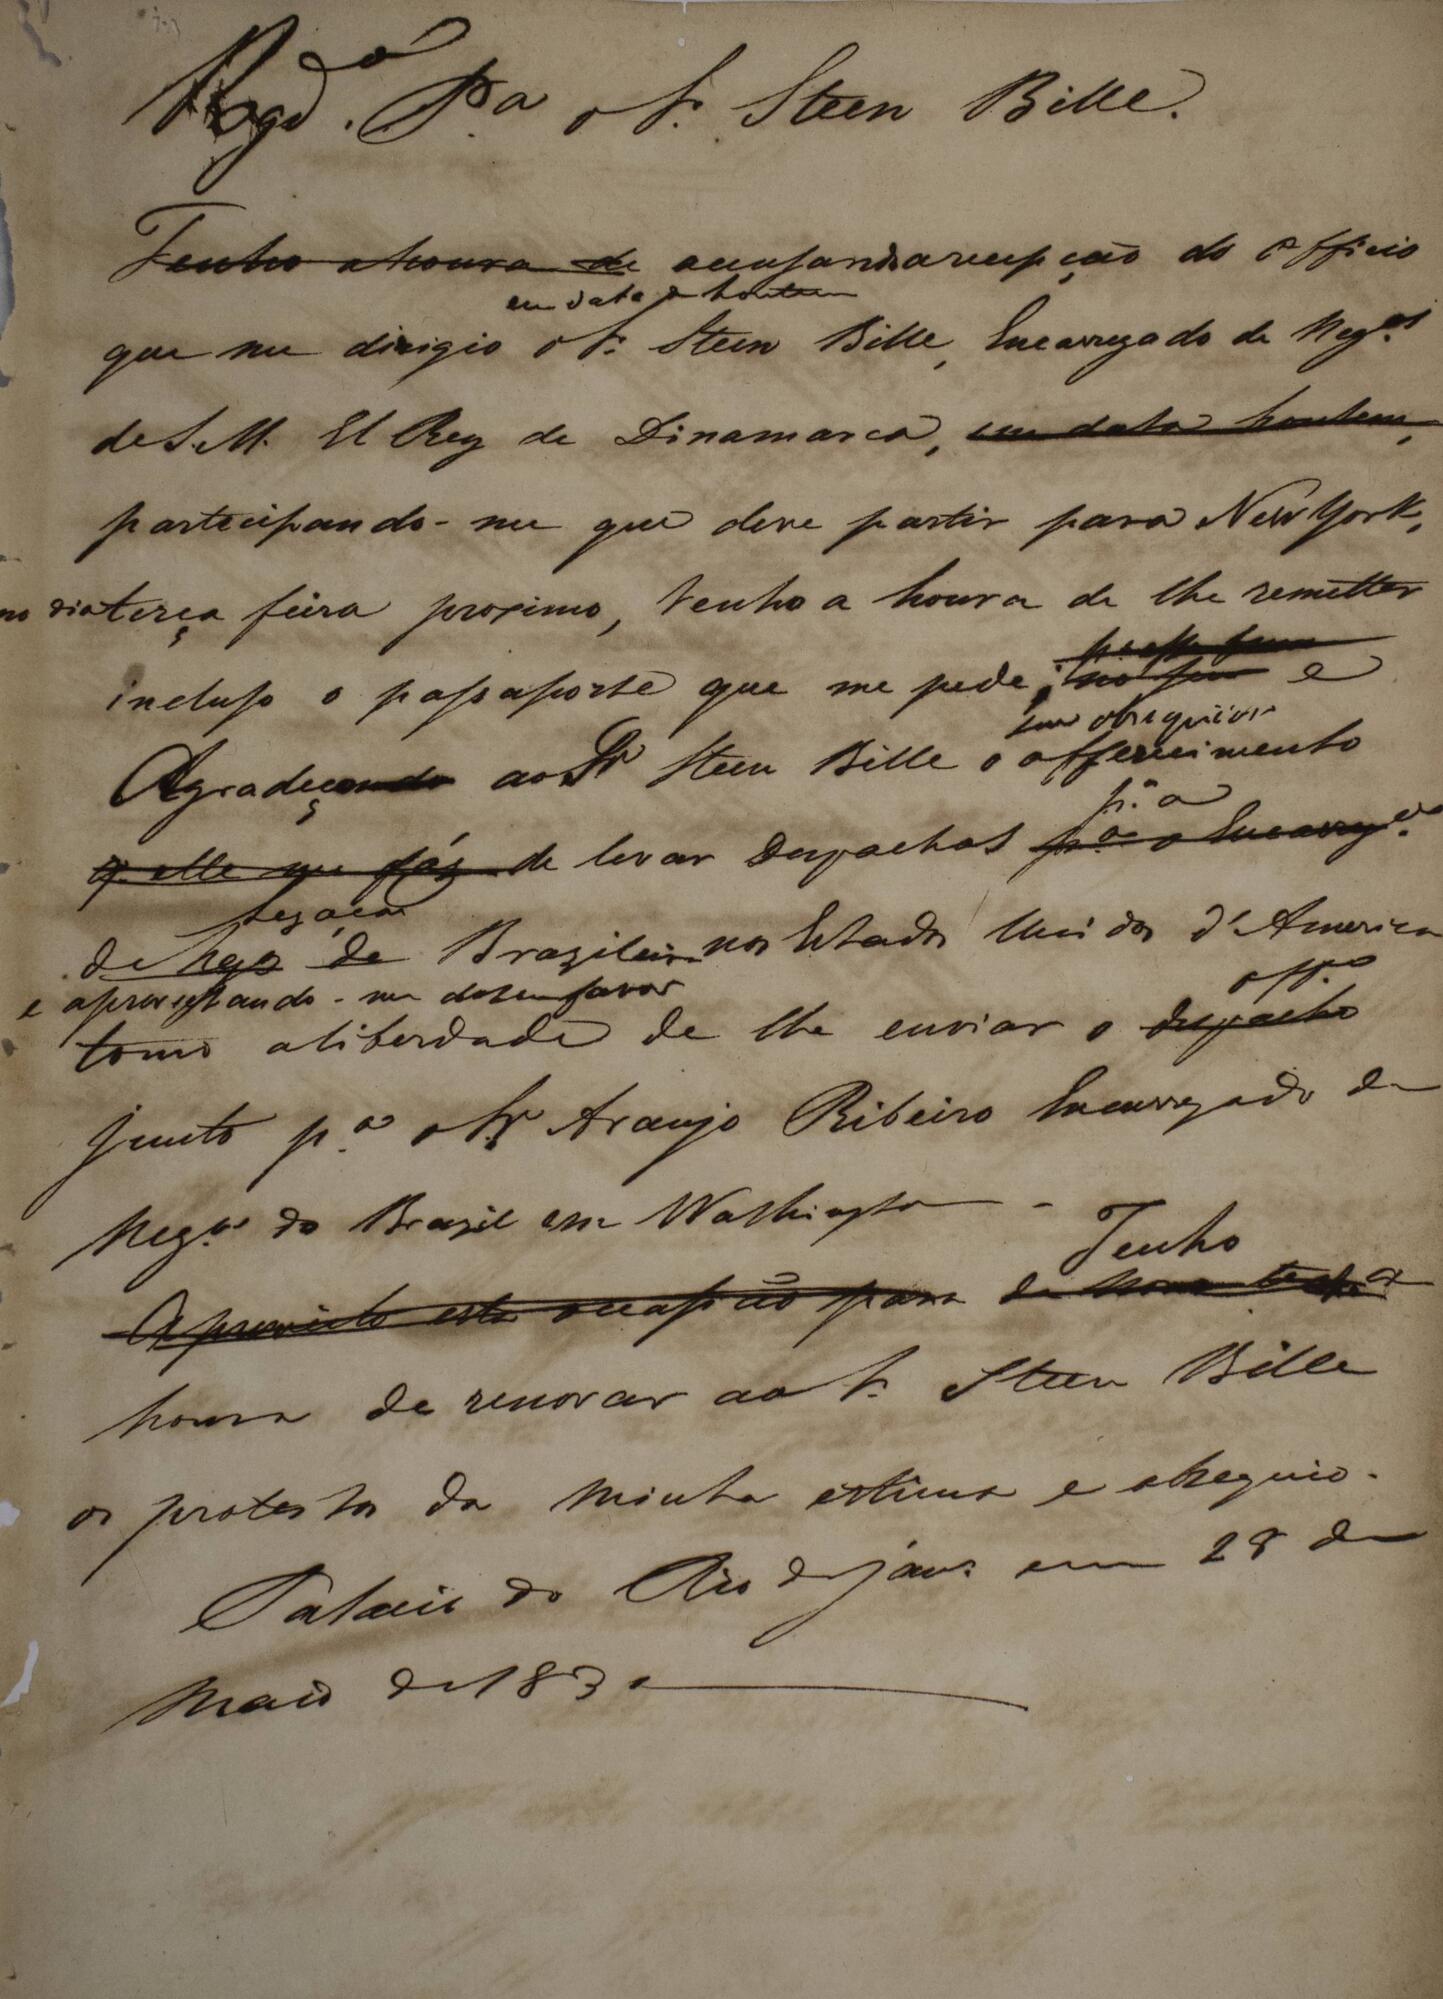 P.a o Sr. Steen Bille.
Tenho a honra de accusando a recepção do Officio
em data de hontem
que me dirigio o Sr. Steen Bille, Encarregado de Neg.os
de S. M. El Rey de Dinamarca, em data hontem,
partecipando-me que deve partir para New York,
no dia terça feira proximo, tenho a honra de lhe remetter
incluso o passaporte que me pede; no seu e
seu obsequioso
Agradecendo ao Sr Steen Bille o offerecimento
p.a a
q. elle me fáz de levar despachos p.a o Encarreg.do
Legação
de Neg.s de Brazileira nos Estados Unidos d'America
e aproveitando-me deseu favor
off.o
tomo aliberdade de lhe enviar o despacho
junto p.a o Sr Araujo Ribeiro Encarregado de
Neg.os do Brazil em Washington -
Tenho
Aproveito esta occasião para de novo ter a
honra de renovar ao Sr. Steen Bille
os protestos da minha estima e obsequio.
Palacio do Rio de Jan.o em 28 de
Maio de 1830